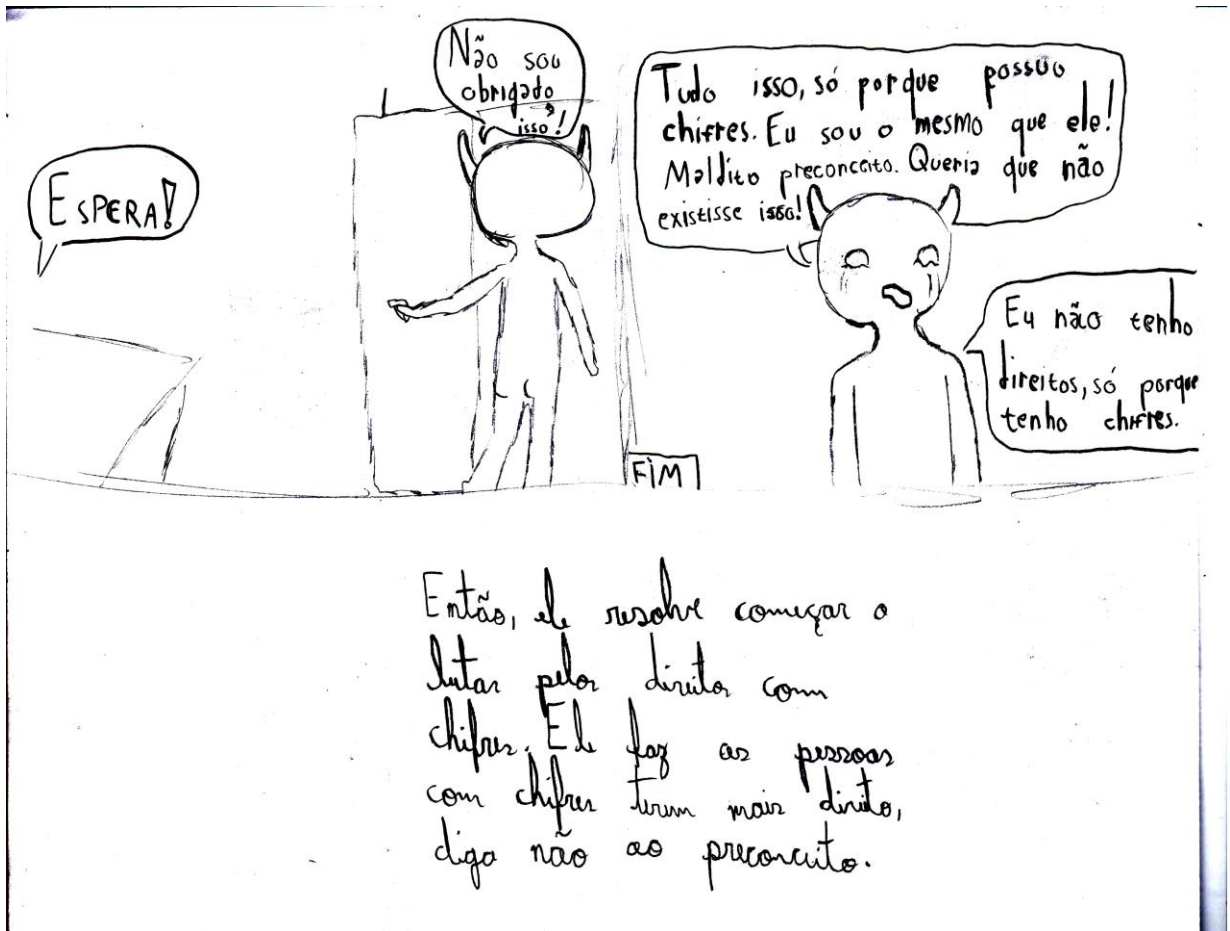 ESPERA!
Não sou
obrigado
a isso!
Tudo isso, só porque possuo
chifres. Eu sou o mesmo que ele!
Maldito preconceito. Queria que não
existisse isso!
Eu não tenho
direitos, só porque
tenho chifres.
FIM
Então, ele resolve começar a
lutar pelos direitos com
chifres. Ele faz as pessoas
com chifres terem mais direito,
diga não ao preconceito.